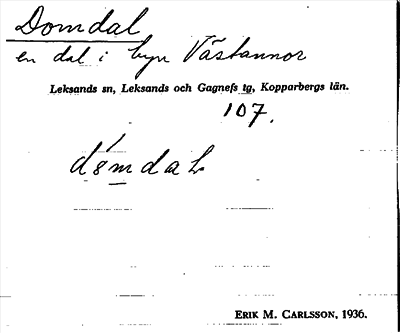 Domdal
en dal i byn Västannor
Leksands sn, Leksands och Gagnefs tg, Kopparbergs län.
107.
ERIK M. CARLSSON, 1936.